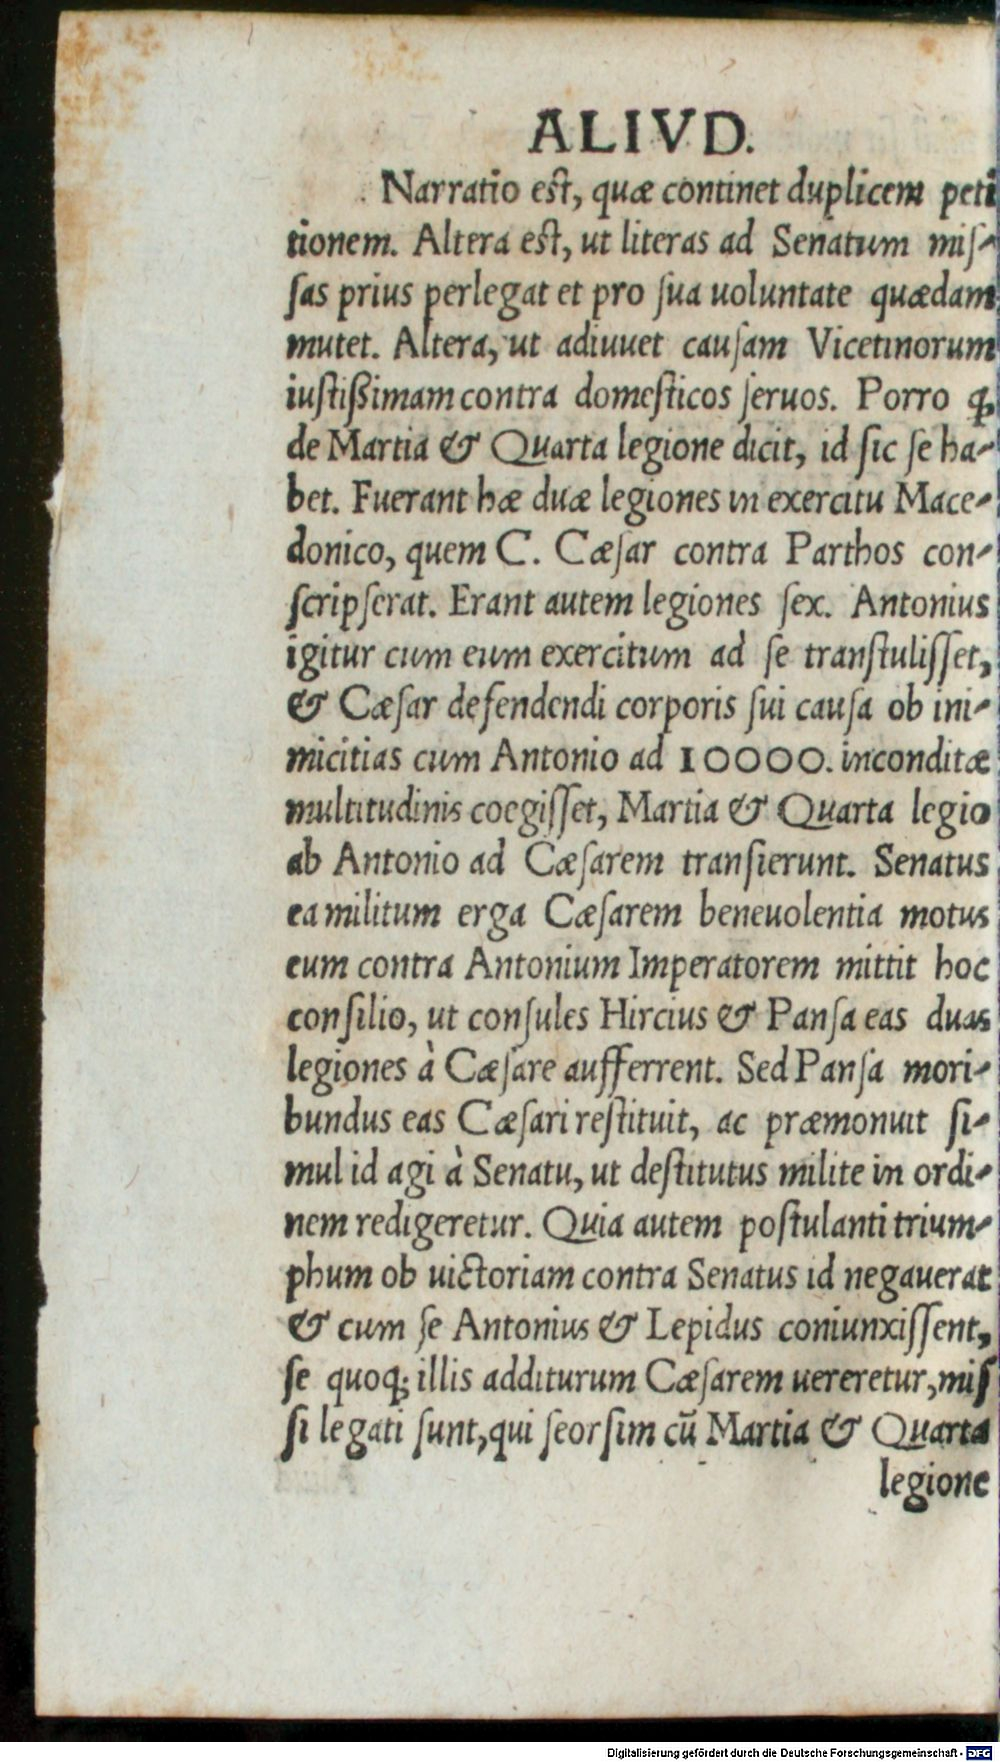 ALIVD.
Narratio est, quæ continet duplicem peti
tionem. Altera est, ut literas ad Senatum mis-
sas prius perlegat et pro sua uoluntate quædam
mutet. Altera, ut adiuuet causam Vicetinorum
iustißimam contra domesticos seruos. Porro q̃,
de Martia & Quarta legione dicit, id sic se ha-
bet. Fuerant hæ duæ legiones in exercitu Mace-
donico, quem C. Cæsar contra Parthos con-
scripserat. Erant autem legiones sex. Antonius
igitur cum eum exercitum ad se transtulisset,
& Cæsar defendendi corporis sui causa ob ini-
micitias cum Antonio ad 10000. inconditæ
multitudinis coegisset, Martia & Quarta legio
ab Antonio ad Cæsarem transierunt. Senatus
ea militum erga Cæsarem beneuolentia motus
eum contra Antonium Imperatorem mittit hoc
consilio, ut consules Hircius & Pansa eas duas
legiones à Cæsare aufferrent. Sed Pansa mori-
bundus eas Cæsari restituit, ac præmonuit si-
mul id agi à Senatu, ut destitutus milite in ordi-
nem redigeretur. Quia autem postulanti trium-
phum ob uictoriam contra Senatus id negauerat
& cum se Antonius & Lepidus coniunxissent,
se quoq; illis additurum Cæsarem uereretur, mis
si legati sunt, qui seorsim cũ Martia & Quarta
legione
Digitalisierung gefördert durch die Deutsche Forschungsgemeinschaft - DFG